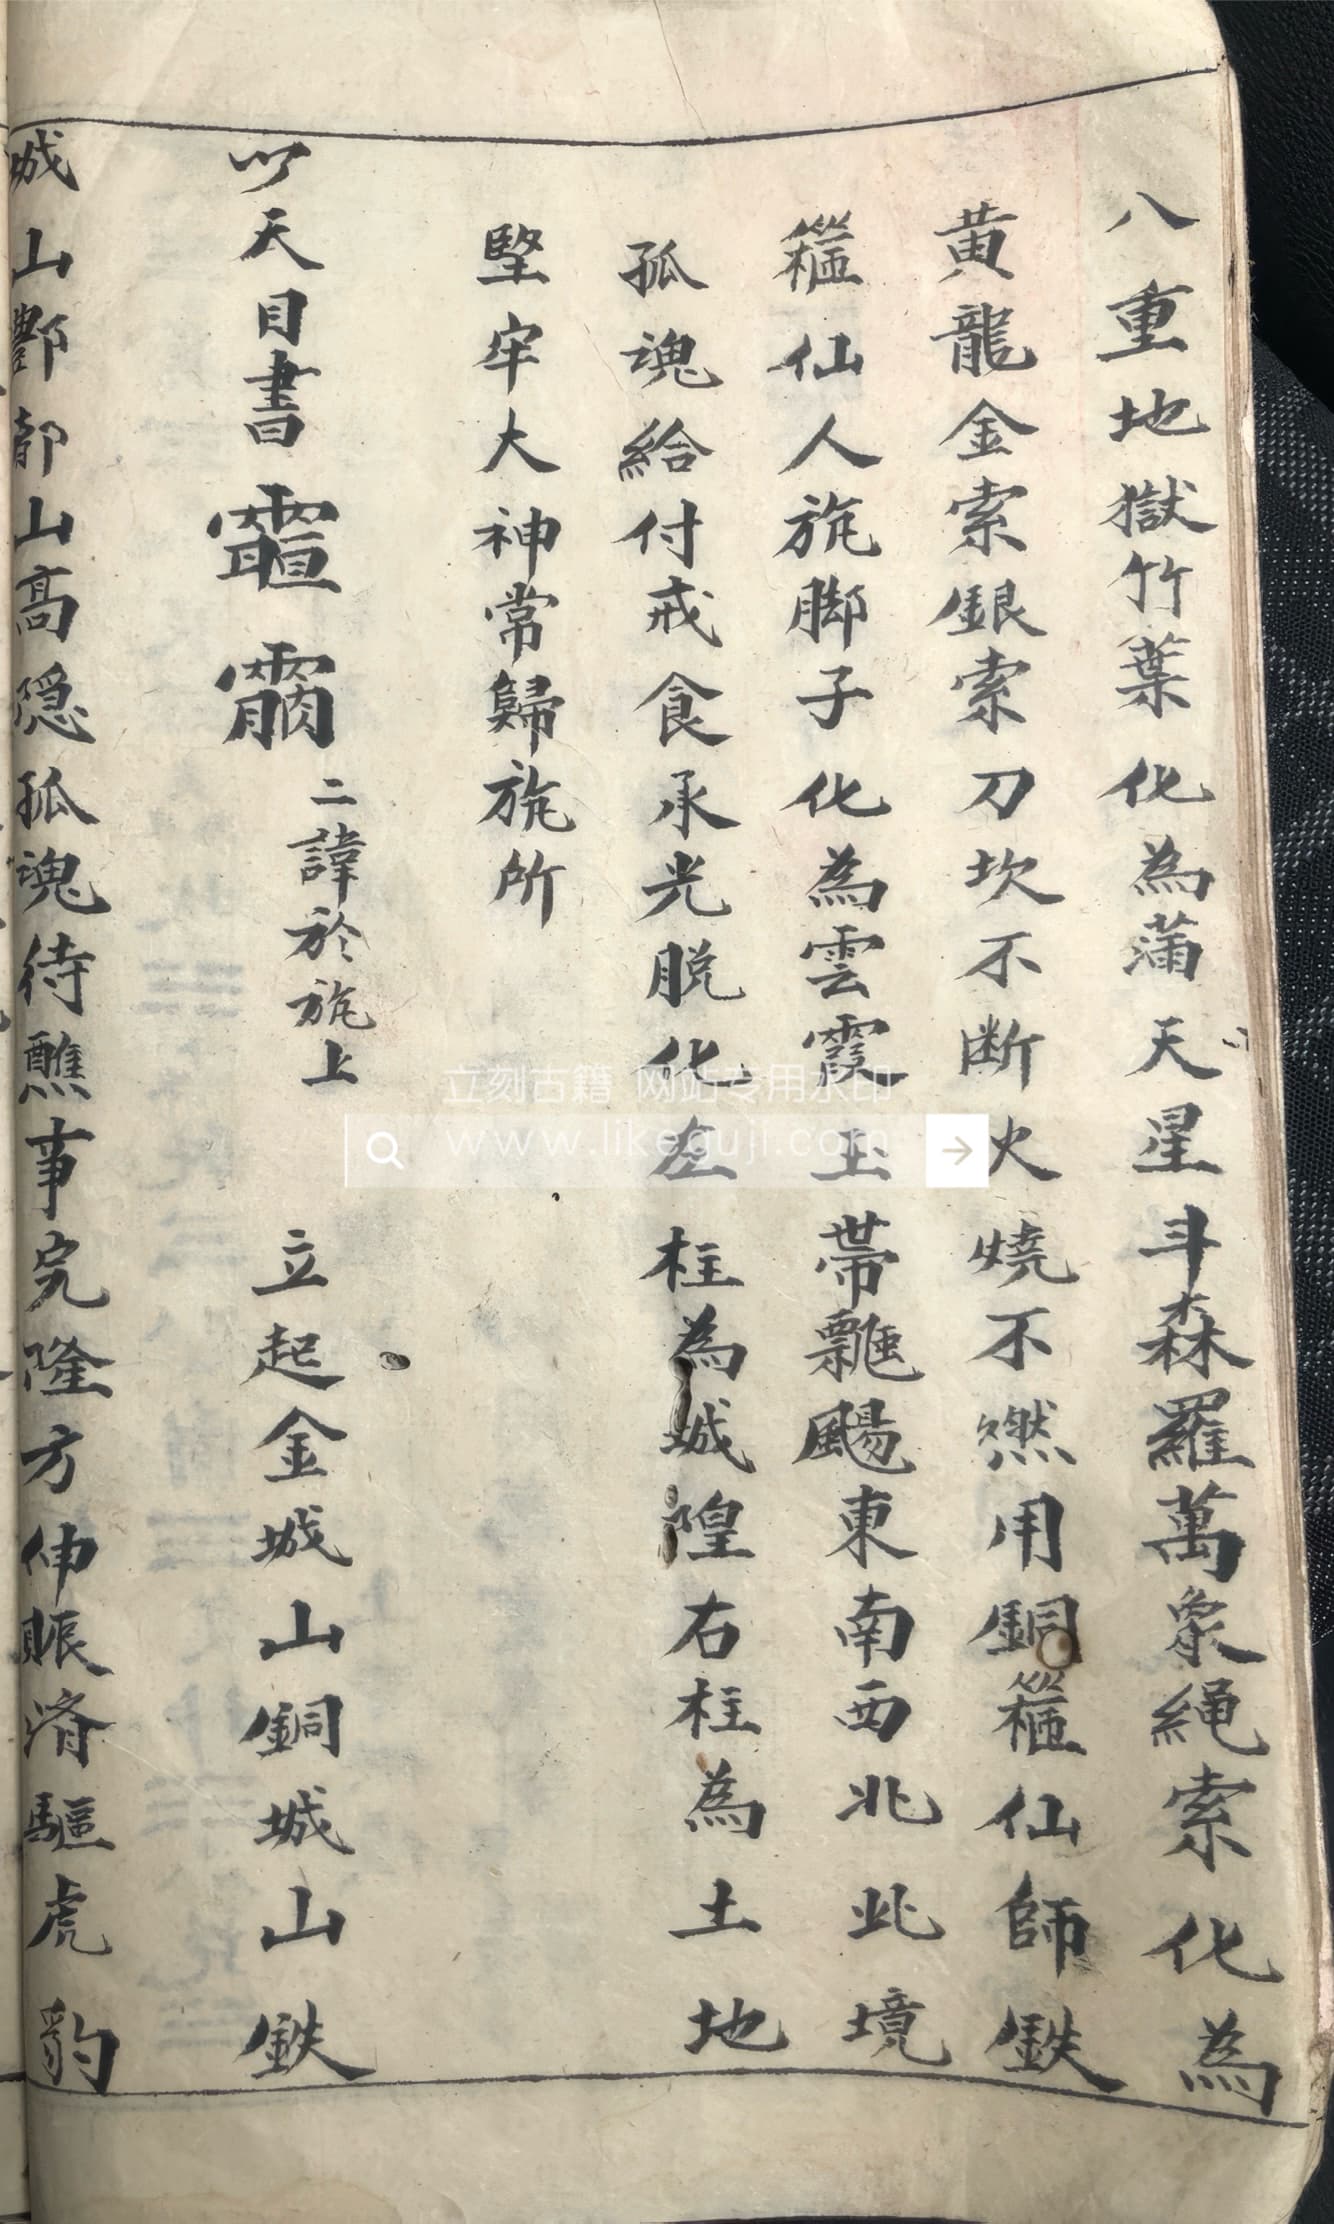 八重地獄竹葉化為蒲天星斗森羅萬象繩索化為
黄龍金索銀索刀坎不断火燒不燃用銅箍仙師鉄
箍仙人旎脚子化為雲霞玉帯飄颺東南西北此境
孤魂給付戒食承光脱化左柱為城隍右柱為土地
堅牢大神常歸旎所
以天目書
二諱於旎上
立起金城山銅城山鉄
城山酆都山高隠孤魂待醮事完隆方伸賑濟驅虎豹
立刻古籍 网站专用水印
www.likeguji.com